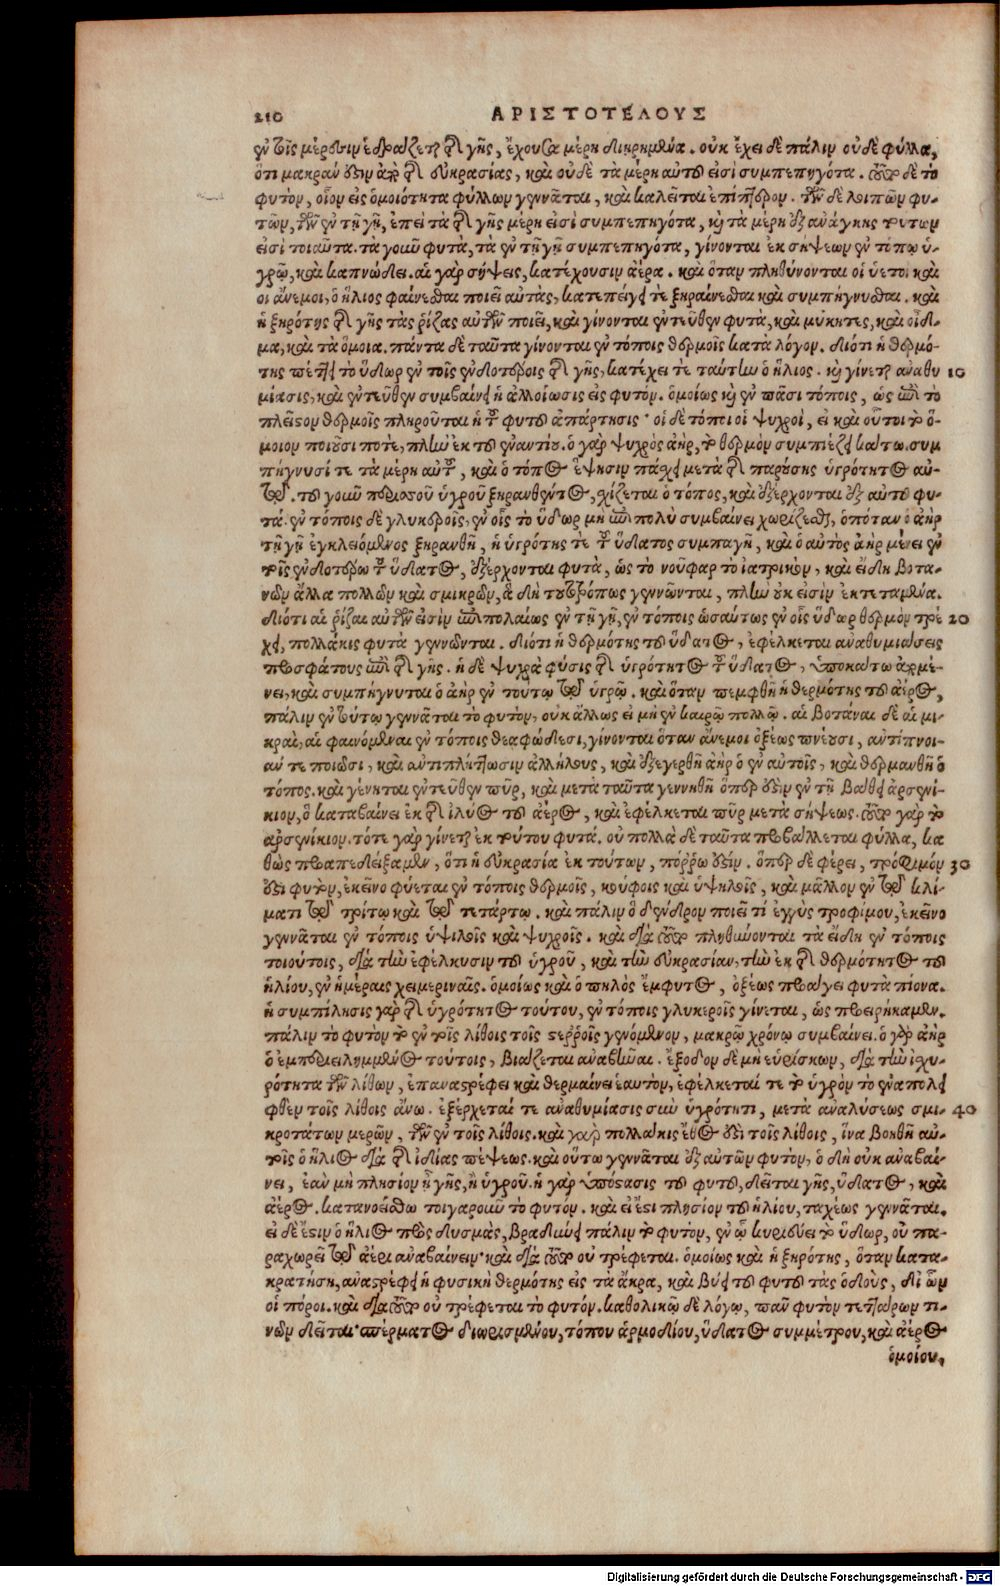 210 ΑΡΙΣΤΟΤΕΛΟΥΣ
ἐν τοῖς μέρεσιν ἑδράζεται τῆς γῆς, ἔχουσα μέρη διῃρημένα. οὐκ ἔχει δὲ πάλιν οὐδὲ φύλλα,
ὅτι μακράν ἐστιν ἀπὸ τῆς εὐκρασίας, καὶ οὐδὲ τὰ μέρη αὐτοῦ εἰσὶ συμπεπηγότα. ἔστι δὲ τὸ
φυτὸν, οἷον εἰς ὁμοιότητα φύλλων γεννᾶται, καὶ καλεῖται ἐπίπεδον. τῶν δὲ λοιπῶν φυ-
τῶν, τῶν ἐν τῇ γῇ, ἐπεὶ τὰ τῆς γῆς μέρη εἰσὶ συμπεπηγότα, καὶ τὰ μέρη ἐξ ἀνάγκης τούτων
εἰσὶ τοιαῦτα. τὰ γοῦν φυτὰ, τὰ ἐν τῇ γῇ συμπεπηγότα, γίνονται ἐκ σήψεων ἐν τόπῳ ὑ-
γρῷ, καὶ καπνώδει. αἱ γὰρ σήψεις, κατέχουσιν ἀέρα. καὶ ὅταν πληθύνονται οἱ ὑετοὶ καὶ
οἱ ἄνεμοι, ὁ ἥλιος φαίνεσθαι ποιεῖ αὐτὰς, κατεπείγει τε ξηραίνεσθαι καὶ συμπήγνυσθαι. καὶ
ἡ ξηρότης τῆς γῆς τὰς ῥίζας αὐτῶν ποιεῖ, καὶ γίνονται ἐντεῦθεν φυτὰ, καὶ μύκητες, καὶ οἶδι-
μα, καὶ τὰ ὅμοια. πάντα δὲ ταῦτα γίνονται ἐν τόποις θερμοῖς κατὰ λόγον. διότι ἡ θερμό-
της πέττει τὸ ὕδωρ ἐν τοῖς ἐνδοτέροις τῆς γῆς, κατέχει τε ταύτην ὁ ἥλιος. καὶ γίνεται ἀναθυ 10
μίασις, καὶ ἐντεῦθεν συμβαίνει ἡ ἀλλοίωσις εἰς φυτόν. ὁμοίως καὶ ἐν πᾶσι τόποις, ὡς ἐπὶ τὸ
πλεῖστον θερμοῖς πληροῦται ἡ τοῦ φυτοῦ ἀπάρτησις· οἱ δὲ τόποι οἱ ψυχροὶ, εἰ καὶ οὗτοι τὸ ὅ-
μοιον ποιοῦσι ποτὲ, πλὴν ἐκ τοῦ ἐναντίου. ὁ γὰρ ψυχρὸς ἀὴρ, τὸ θερμὸν συμπιέζει κάτω. συμ
πήγνυσί τε τὰ μέρη αὐτοῦ, καὶ ὁ τόπος ἕψησιν πάσχει μετὰ τῆς παρούσης ὑγρότητος αὐ-
τῷ. τοῦ γοῦν περισσοῦ ὑγροῦ ξηρανθέντος, σχίζεται ὁ τόπος, καὶ ἐξέρχονται ἐξ αὐτοῦ φυ-
τά. ἐν τόποις δὲ γλυκεροῖς, ἐν οἷς τὸ ὕδωρ μὴ ἐπὶ πολὺ συμβαίνει χωρίζεσθαι, ὁπόταν ὁ ἀὴρ
τῇ γῇ ἐγκλειόμενος ξηρανθῇ, ἡ ὑγρότης τε τοῦ ὕδατος συμπαγῇ, καὶ ὁ αὐτὸς ἀὴρ μένει ἐν
τοῖς ἐνδοτέρω τοῦ ὕδατος, ἐξέρχονται φυτὰ, ὡς τὸ νούφαρ τὸ ἰατρικὸν, καὶ εἴδη βοτα-
νῶν ἄλλα πολλῶν καὶ σμικρῶν, ἃ δὴ τουτρόπως γεννῶνται, πλὴν οὐκ εἰσὶν ἐκτεταμένα.
διότι αἱ ῥίζαι αὐτῶν εἰσὶν ἐπιπολαίως ἐν τῇ γῇ, ἐν τόποις ὡσαύτως ἐν οἷς ὕδωρ θερμὸν τρέ 20
χει, πολλάκις φυτὰ γεννῶνται. διότι ἡ θερμότης τοῦ ὕδατος, ἐφέλκεται ἀναθυμιάσεις
προσφάτους ἐπὶ τῆς γῆς. ἡ δὲ ψυχρὰ φύσις τῆς ὑγρότητος τοῦ ὕδατος, ὑποκάτω ἀπομέ-
νει, καὶ συμπήγνυται ὁ ἀὴρ ἐν τούτῳ τῷ ὑγρῷ. καὶ ὅταν πεμφθῇ ἡ θερμότης τοῦ ἀέρος,
πάλιν ἐν τούτῳ γεννᾶται τὸ φυτὸν, οὐκ ἄλλως εἰ μὴ ἐν καιρῷ πολλῷ. αἱ βοτάναι δὲ αἱ μι-
κραὶ, αἱ φαινόμεναι ἐν τόποις θεαφώδεσι, γίνονται ὅταν ἄνεμοι ὀξέως πνέουσι, ἀντίπνοι-
αν τε ποιῶσι, καὶ ἀντιπλήττωσιν ἀλλήλους, καὶ ἐξεγερθῇ ἀὴρ ὁ ἐν αὐτοῖς, καὶ θερμανθῇ ὁ
τόπος. καὶ γένηται ἐντεῦθεν πῦρ, καὶ μετὰ ταῦτα γεννηθῇ ὅπερ ἐστὶν ἐν τῇ βάθει ἀρσενί-
κιον, ὃ καταβαίνει ἐκ τῆς ἰλύος τοῦ ἀέρος, καὶ ἐφέλκεται πῦρ μετὰ σήψεως. ἔστι γὰρ τὸ
ἀρσενίκιον. τότε γὰρ γίνεται ἐκ τούτου φυτά. οὐ πολλὰ δὲ ταῦτα προβάλλεται φύλλα, κα
θὼς προαπεδείξαμεν, ὅτι ἡ εὐκρασία ἐκ τούτων, πόρρω ἐστίν. ὅπερ δὲ φέρει, τρόφιμόν 30
ἐστι φυτὸν, ἐκεῖνο φύεται ἐν τόποις θερμοῖς, κούφοις καὶ ὑψηλοῖς, καὶ μᾶλλον ἐν τῷ κλί-
ματι τῷ τρίτῳ καὶ τῷ τετάρτῳ. καὶ πάλιν ὃ δένδρον ποιεῖ τί ἐγγὺς τροφίμου, ἐκεῖνο
γεννᾶται ἐν τόποις ὑψιλοῖς καὶ ψυχροῖς. καὶ διὰ τοῦτο πληθύνονται τὰ εἴδη ἐν τόποις
τοιούτοις, διὰ τὴν ἐφέλκυσιν τοῦ ὑγροῦ, καὶ τὴν εὐκρασίαν, τὴν ἐκ τῆς θερμότητος τοῦ
ἡλίου, ἐν ἡμέραις χειμεριναῖς. ὁμοίως καὶ ὁ πηλὸς ἔμφυτος, ὀξέως προάγει φυτὰ πίονα.
ἡ συμπίλησις γὰρ τῆς ὑγρότητος τούτου, ἐν τόποις γλυκεροῖς γίνεται, ὡς προειρήκαμεν.
πάλιν τὸ φυτὸν τὸ ἐν τοῖς λίθοις τοῖς στερροῖς γενόμενον, μακρῷ χρόνῳ συμβαίνει. ὁ γὰρ ἀὴρ
ὁ ἐμπεριειλημμένος τούτοις, βιάζεται ἀναβῆναι. ἔξοδον δὲ μὴ εὑρίσκων, διὰ τὴν ἰσχυ-
ρότητα τῶν λίθων, ἐπαναστρέφει καὶ θερμαίνει ἑαυτὸν, ἐφέλκεταί τε τὸ ὑγρὸν τὸ ἐναπολει
φθὲν τοῖς λίθοις ἄνω. ἐξέρχεταί τε ἀναθυμίασις σὺν ὑγρότητι, μετὰ ἀναλύσεως σμι- 40
κροτάτων μερῶν, τῶν ἐν τοῖς λίθοις. καὶ γὰρ πολλάκις ἔθος ἐστὶ τοῖς λίθοις, ἵνα βοηθῇ αὐ-
τοῖς ὁ ἥλιος διὰ τῆς ἰδίας πέψεως. καὶ οὕτω γεννᾶται ἐξ αὐτῶν φυτὸν, ὃ δὴ οὐκ ἀναβαί-
νει, ἐὰν μὴ πλησίον ᾖ γῆς, ἢ ὑγροῦ. ἡ γὰρ ὑπόστασις τοῦ φυτοῦ, δεῖται γῆς, ὕδατος, καὶ
ἀέρος. κατανοείσθω τοιγαροῦν τὸ φυτόν. καὶ εἰ ἔστι πλησίον τοῦ ἡλίου, ταχέως γεννᾶται.
εἰ δὲ ἔστιν ὁ ἥλιος πρὸς δυσμὰς, βραδύνει πάλιν τὸ φυτὸν, ἐν ᾧ κυριεύει τὸ ὕδωρ, οὐ πα-
ραχωρεῖ τῷ ἀέρι ἀναβαίνειν· καὶ διὰ τοῦτο οὐ τρέφεται. ὁμοίως καὶ ἡ ξηρότης, ὅταν κατα-
κρατήσῃ, ἀναστρέφει ἡ φυσικὴ θερμότης εἰς τὰ ἄκρα, καὶ βύει τοῦ φυτοῦ τὰς ὁδοὺς, δι ὧν
οἱ πόροι. καὶ διὰ τοῦτο οὐ τρέφεται τὸ φυτόν. καθολικῷ δὲ λόγῳ, πᾶν φυτὸν τεττάρων τι-
νῶν δεῖται· σπέρματος διωρισμένου, τόπου ἁρμοδίου, ὕδατος συμμέτρου, καὶ ἀέρος
ὁμοίου,
Digitalisierung gefördert durch die Deutsche Forschungsgemeinschaft - DFG